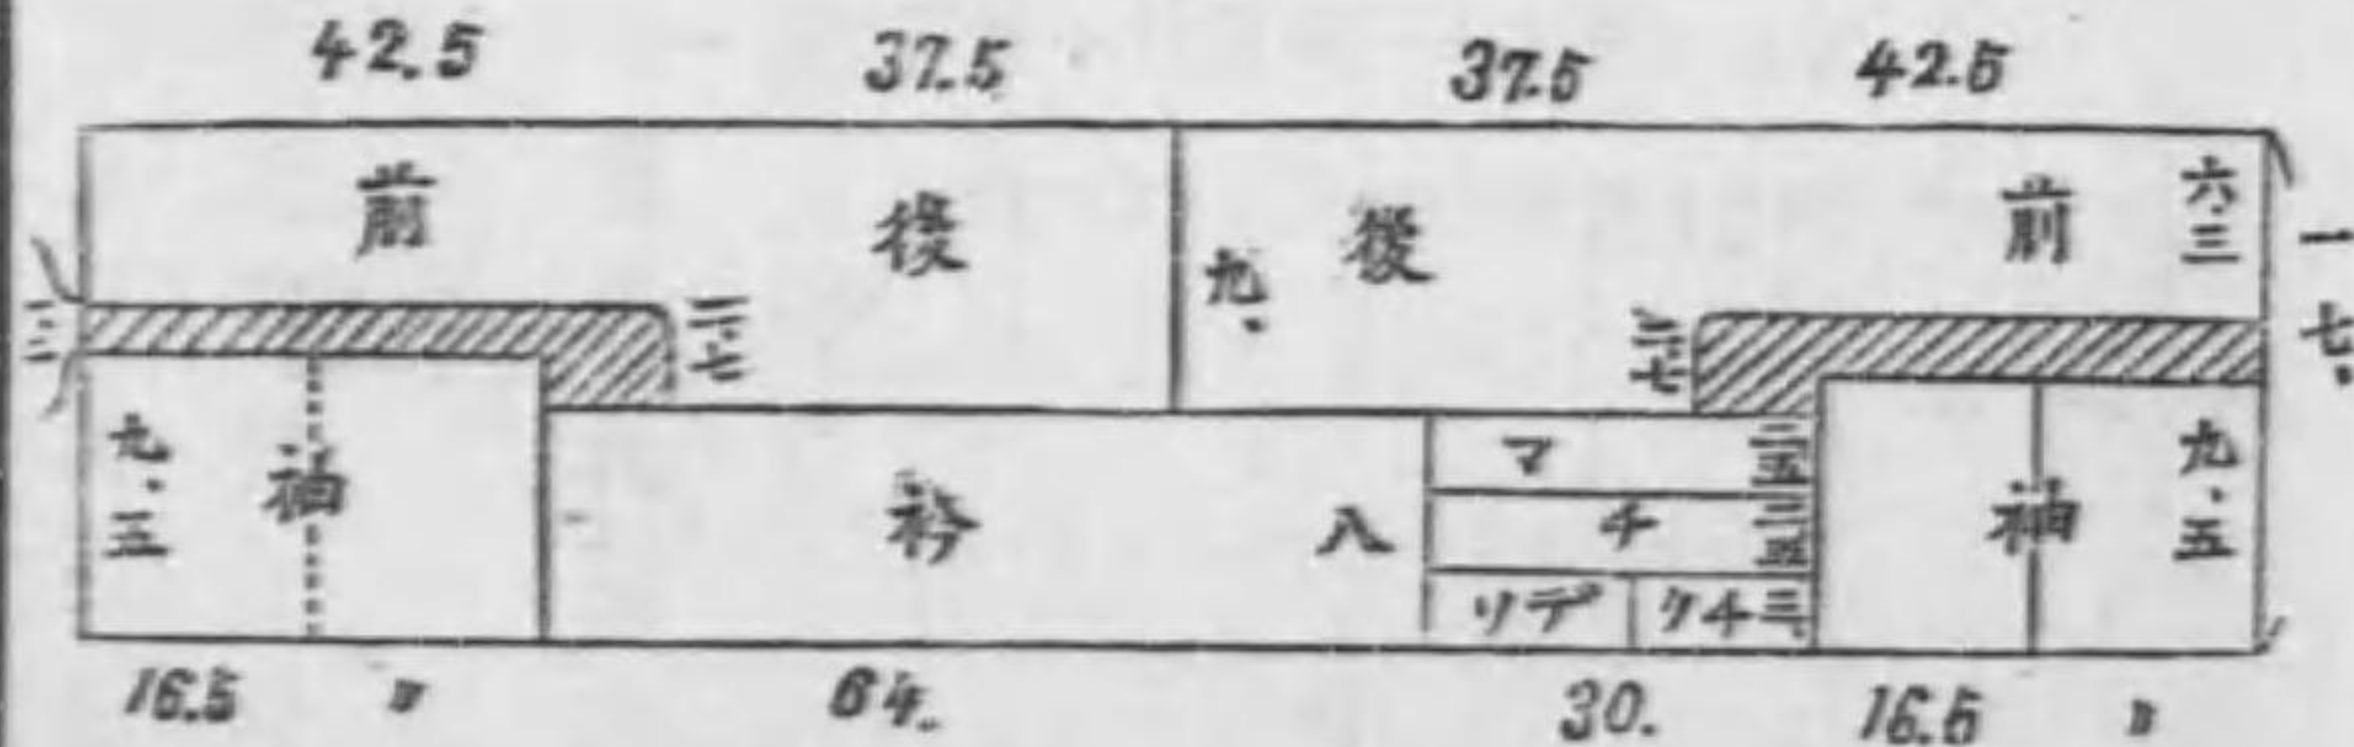 42.5 37.5 37.5 42.5
前 後 後 前 六.三
九.
一七.
一.二
二.七
二.七
九.五 袖 衽 八 マ 二.五
チ 二.五
ソデ クチ 三.
袖 九.五
16.5 〃 64. 30. 16.5 〃